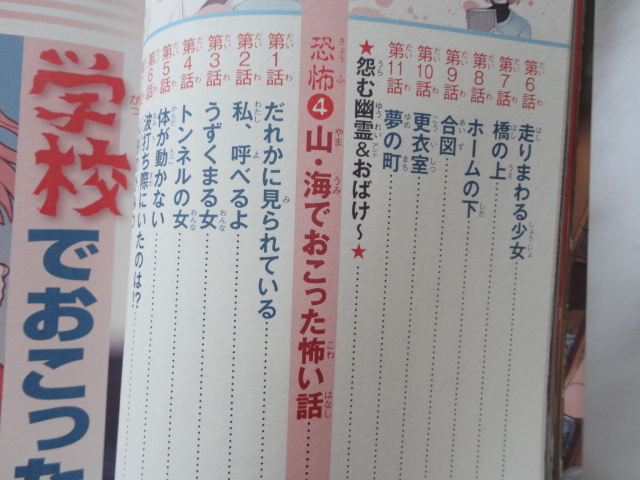 第6話 走りまわる少女
第7話 橋の上
第8話 ホームの下
第9話 合図
第10話 更衣室
第11話 夢の町
★怨む幽霊&おばけ~★
恐怖❹山・海でおこった怖い話
第1話 だれかに見られている
第2話 私、呼べるよ
第3話 うずくまる女
第4話 トンネルの女
第5話 体が動かない
第6話 波打ち際にいたのは!?
学校
でおこった